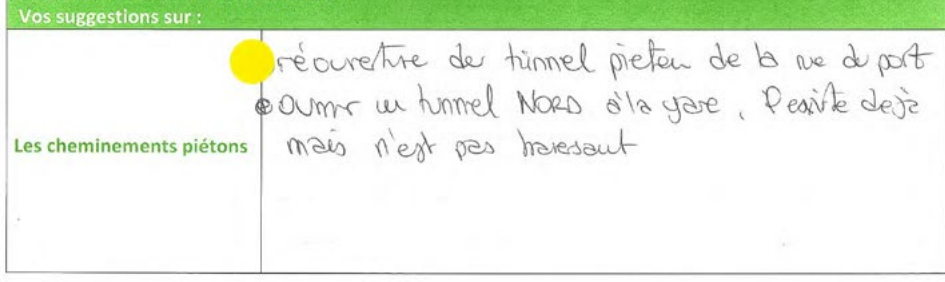 Vos suggestions sur :
Les cheminements piétons
réouverture de tunnel pieton de la rue du port
ouvrir un tunnel NORD à la gare, il existe dejà
mais n'est pas traversant